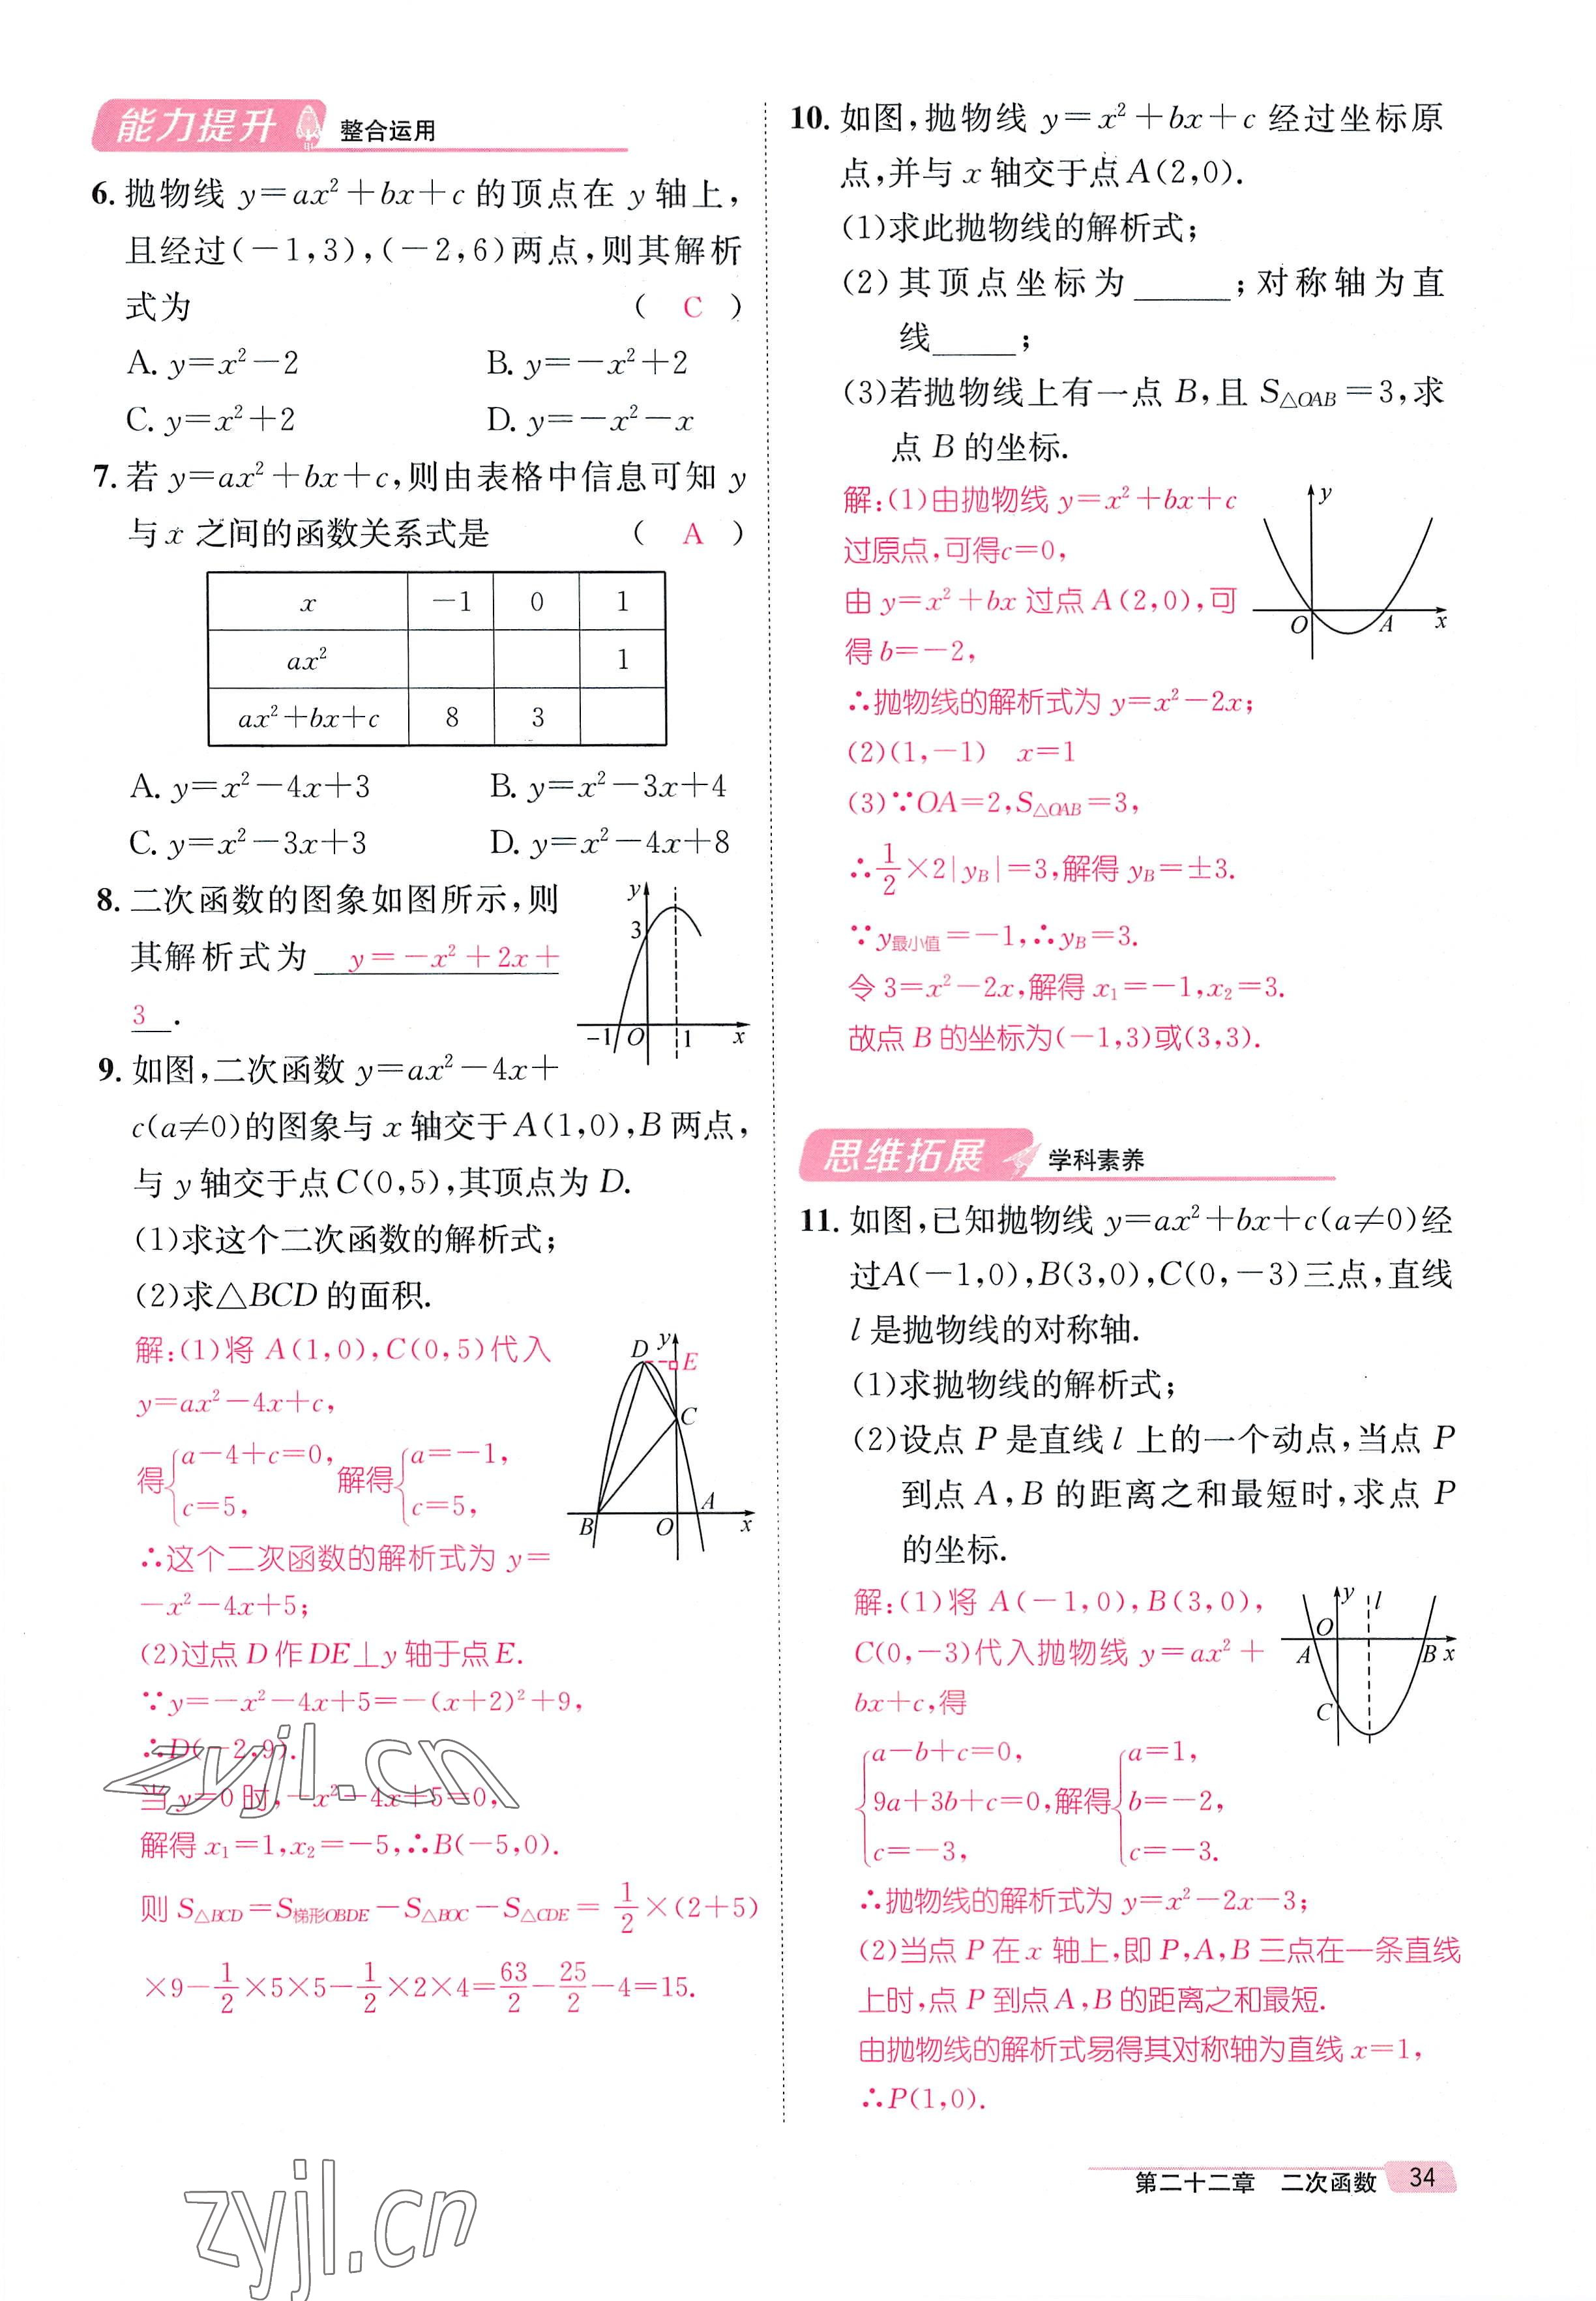 能力提升 整合运用
6. 抛物线 y=ax²+bx+c 的顶点在 y 轴上,
且经过(-1,3),(-2,6)两点,则其解析
式为 ( C )
A. y=x²-2 B. y=-x²+2
C. y=x²+2 D. y=-x²-x
7. 若 y=ax²+bx+c,则由表格中信息可知 y
与 x 之间的函数关系式是 ( A )
x -1 0 1
ax² 1
ax²+bx+c 8 3
A. y=x²-4x+3 B. y=x²-3x+4
C. y=x²-3x+3 D. y=x²-4x+8
8. 二次函数的图象如图所示,则
其解析式为 y=-x²+2x+
3 .
y
3
-1 O 1 x
9. 如图,二次函数 y=ax²-4x+
c(a≠0)的图象与 x 轴交于A(1,0),B 两点,
与 y 轴交于点C(0,5),其顶点为 D.
(1)求这个二次函数的解析式;
(2)求△BCD 的面积.
解:(1)将 A(1,0),C(0,5)代入
y=ax²-4x+c,
得{a-4+c=0, 解得{a=-1,
c=5, c=5,
∴这个二次函数的解析式为 y=
-x²-4x+5;
(2)过点 D 作 DE⊥y 轴于点 E.
∵y=-x²-4x+5=-(x+2)²+9,
∴D(-2,9).
当 y=0 时,-x²-4x+5=0,
解得 x₁=1,x₂=-5,∴B(-5,0).
则 S△BCD=S梯形OBDE-S△BOC-S△CDE=1/2×(2+5)
×9-1/2×5×5-1/2×2×4=63/2-25/2-4=15.
D y E
C
B O A x
10. 如图,抛物线 y=x²+bx+c 经过坐标原
点,并与 x 轴交于点A(2,0).
(1)求此抛物线的解析式;
(2)其顶点坐标为______;对称轴为直
线_____;
(3)若抛物线上有一点 B,且 S△OAB=3,求
点 B 的坐标.
解:(1)由抛物线 y=x²+bx+c
过原点,可得c=0,
由 y=x²+bx 过点 A(2,0),可
得 b=-2,
∴抛物线的解析式为 y=x²-2x;
(2)(1,-1) x=1
(3)∵OA=2,S△OAB=3,
∴1/2×2|yB|=3,解得 yB=±3.
∵y最小值=-1,∴yB=3.
令 3=x²-2x,解得 x₁=-1,x₂=3.
故点 B 的坐标为(-1,3)或(3,3).
y
O A x
思维拓展 学科素养
11. 如图,已知抛物线 y=ax²+bx+c(a≠0)经
过A(-1,0),B(3,0),C(0,-3)三点,直线
l 是抛物线的对称轴.
(1)求抛物线的解析式;
(2)设点 P 是直线 l 上的一个动点,当点 P
到点 A,B 的距离之和最短时,求点 P
的坐标.
解:(1)将 A(-1,0),B(3,0),
C(0,-3)代入抛物线 y=ax²+
bx+c,得
{a-b+c=0, {a=1,
9a+3b+c=0,解得 b=-2,
c=-3, c=-3.
∴抛物线的解析式为 y=x²-2x-3;
(2)当点 P 在 x 轴上,即 P,A,B 三点在一条直线
上时,点 P 到点 A,B 的距离之和最短.
由抛物线的解析式易得其对称轴为直线 x=1,
∴P(1,0).
y l
O
A B x
C
zyjl.cn
zyjl.cn
第二十二章 二次函数 34